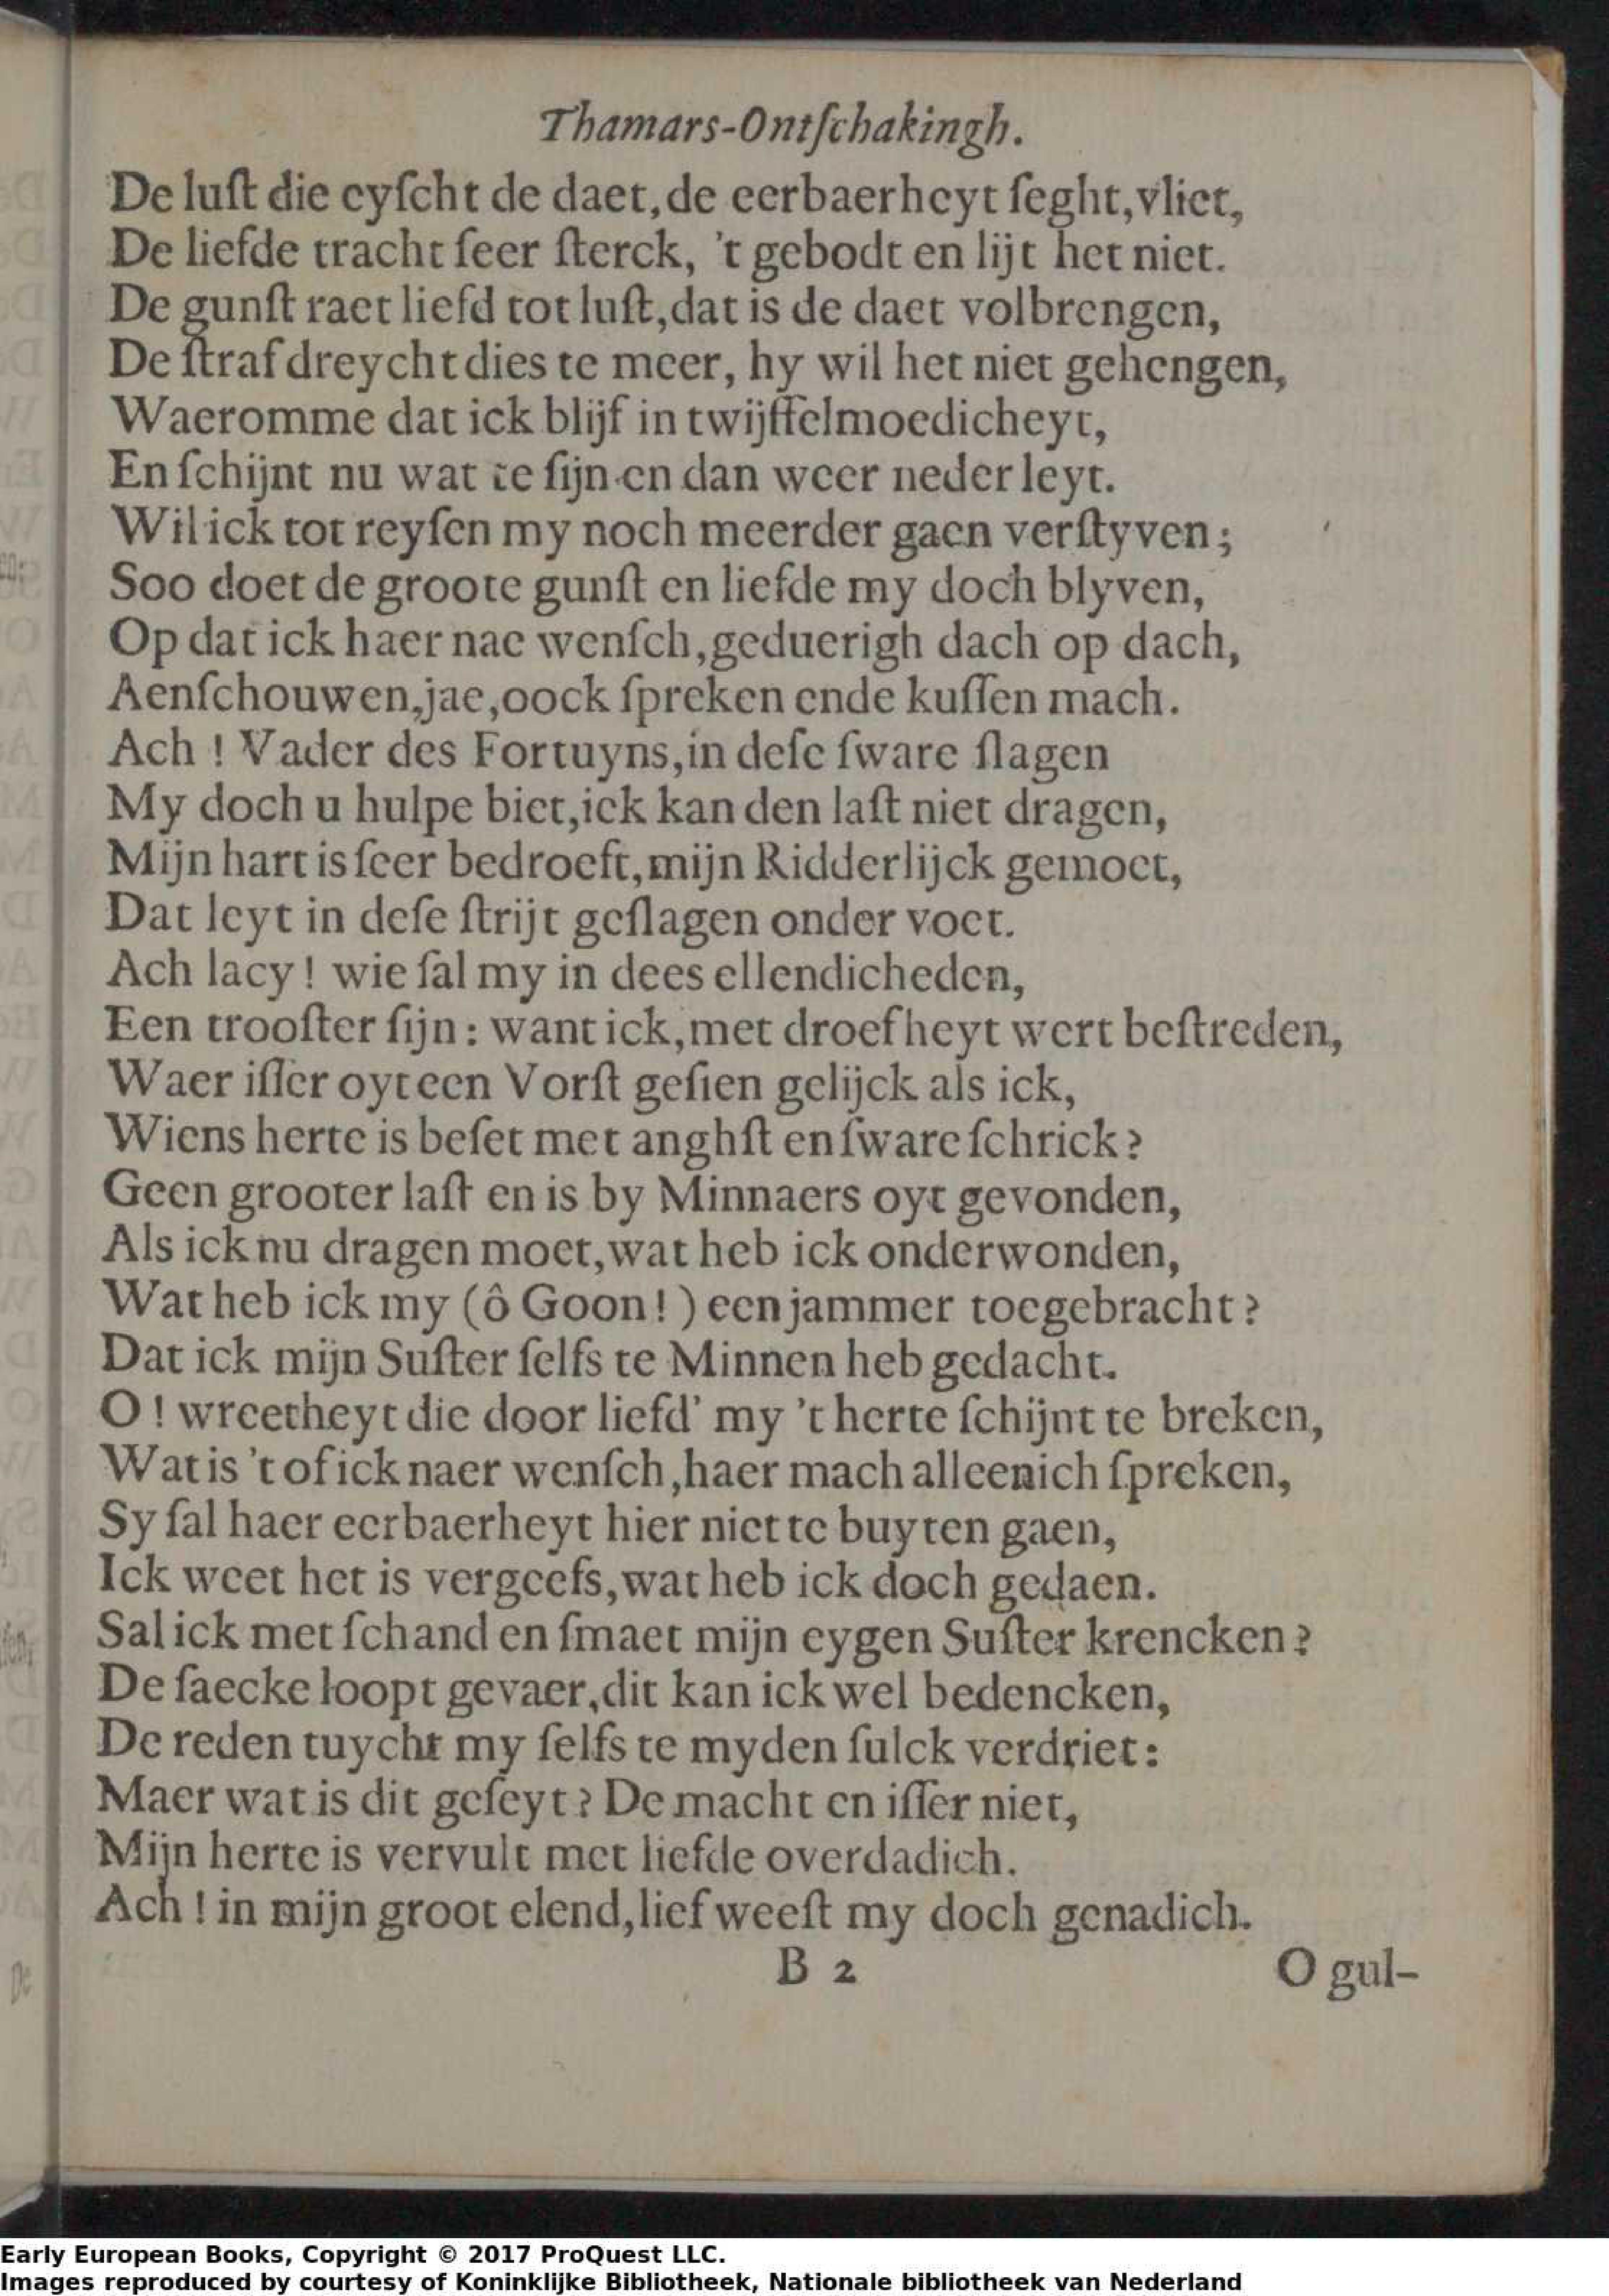 Thamars-Ontſchakingh.
De luſt die eyſcht de daet, de eerbaerheyt ſeght, vliet,
De liefde tracht ſeer ſterck, 't gebodt en lijt het niet.
De gunſt raet liefd tot luſt, dat is de daet volbrengen,
De ſtraf dreycht dies te meer, hy wil het niet gehengen,
Waeromme dat ick blijf in twijffelmoedicheyt,
En ſchijnt nu wat te ſijn en dan weer neder leyt.
Wil ick tot reyſen my noch meerder gaen verſtyven;
Soo doet de groote gunſt en liefde my doch blyven,
Op dat ick haer nae wenſch, geduerigh dach op dach,
Aenſchouwen, jae, oock ſpreken ende kuſſen mach.
Ach ! Vader des Fortuyns, in deſe ſware ſlagen
My doch u hulpe biet, ick kan den laſt niet dragen,
Mijn hart is ſeer bedroeft, mijn Ridderlijck gemoet,
Dat leyt in deſe ſtrijt geſlagen onder voet.
Ach lacy ! wie ſal my in dees ellendicheden,
Een trooſter ſijn : want ick, met droefheyt wert beſtreden,
Waer iſſer oyt een Vorſt geſien gelijck als ick,
Wiens herte is beſet met anghſt en ſware ſchrick ?
Geen grooter laſt en is by Minnaers oyt gevonden,
Als ick nu dragen moet, wat heb ick onderwonden,
Wat heb ick my (ô Goon! ) een jammer toegebracht ?
Dat ick mijn Suſter ſelfs te Minnen heb gedacht.
O ! wreetheyt die door liefd' my 't herte ſchijnt te breken,
Wat is 't of ick naer wenſch, haer mach alleenich ſpreken,
Sy ſal haer eerbaerheyt hier niet te buyten gaen,
Ick weet het is vergeefs, wat heb ick doch gedaen.
Sal ick met ſchand en ſmaet mijn eygen Suſter krencken ?
De ſaecke loopt gevaer, dit kan ick wel bedencken,
De reden tuycht my ſelfs te myden ſulck verdriet :
Maer wat is dit geſeyt ? De macht en iſſer niet,
Mijn herte is vervult met liefde overdadich.
Ach ! in mijn groot elend, lief weeſt my doch genadich.
B 2 O gul-
Early European Books, Copyright © 2017 ProQuest LLC.
Images reproduced by courtesy of Koninklijke Bibliotheek, Nationale bibliotheek van Nederland